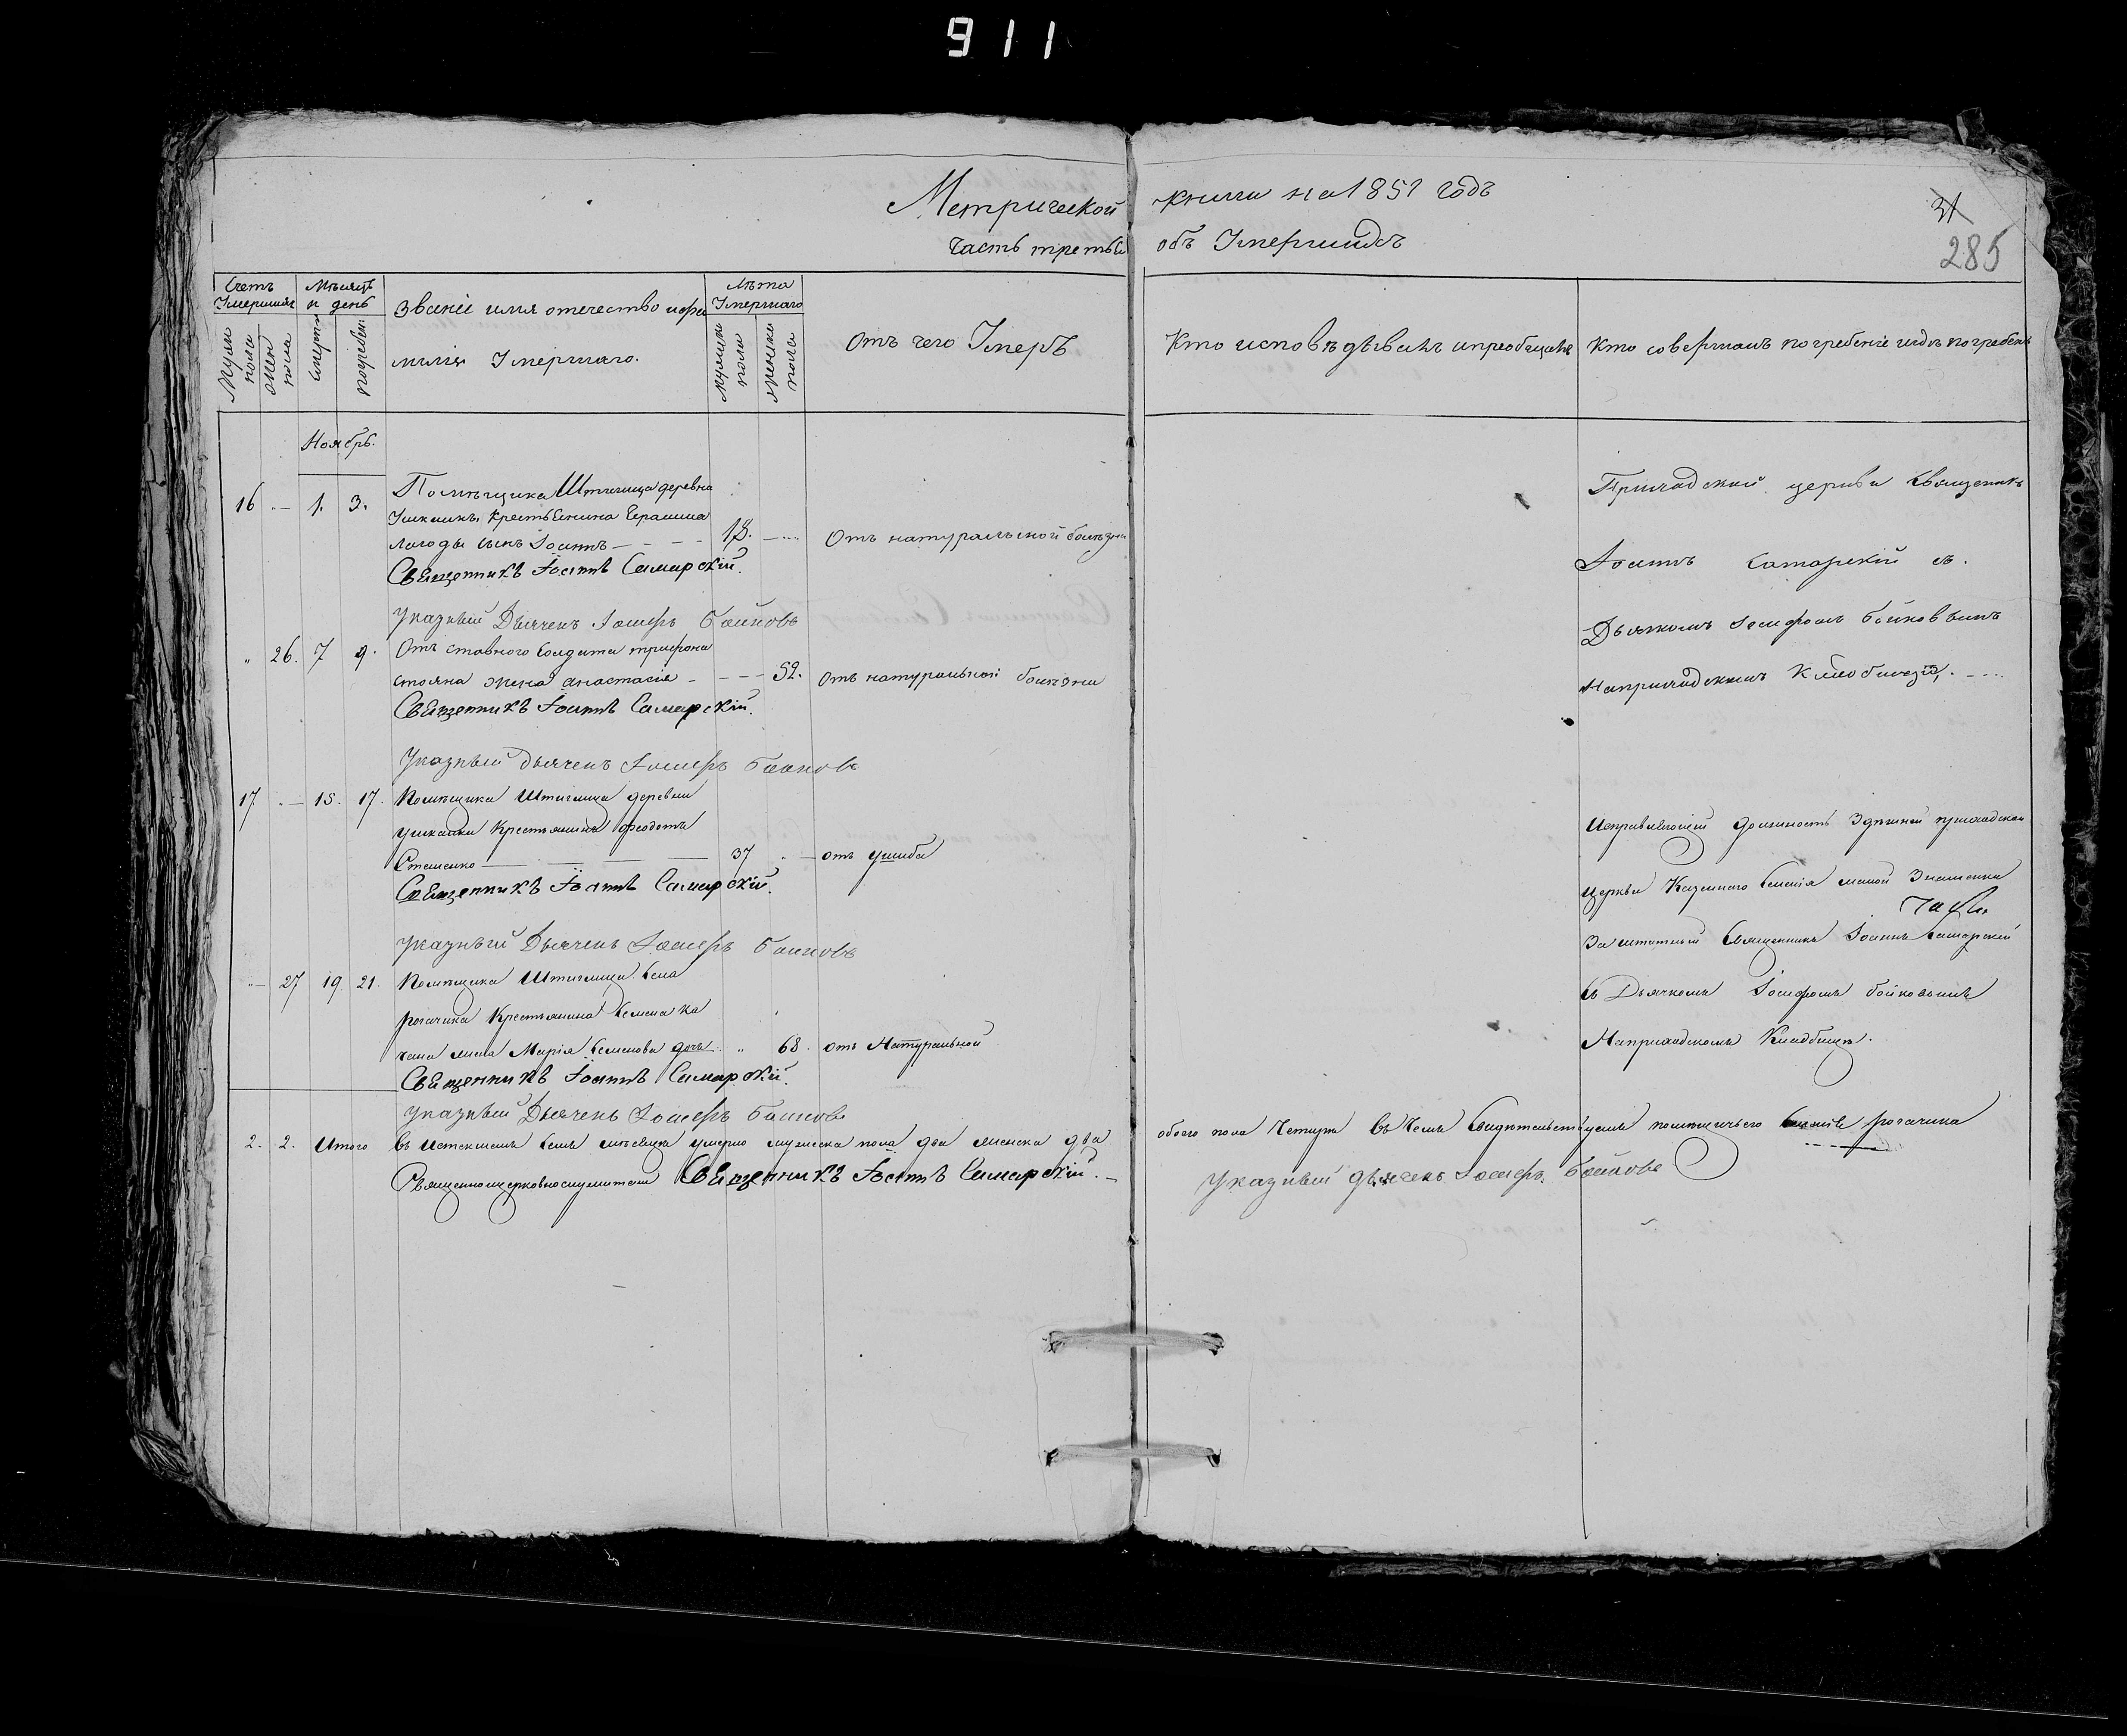 911
Метрической книги на 1851 годъ
31
часть третья объ Умершихъ
285
Счетъ Умершихъ
Мѣсяцъ и день
Званіе имя отечество и фамилія Умершаго.
Лѣта Умершаго
Муж пола
Жен пола
смерти
погребен:
мужска пола
женска пола
Отъ чего Умеръ
Кто исповѣдывалъ и пріобщалъ
Кто совершалъ погребеніе и гдѣ погребенъ
Ноябрь.
16 „ — 1. 3. Помѣщика Штиглица деревни
крестьянина Герасима
сынъ Іоаннъ — — — 18. — Отъ натуральной болѣзни
Священникъ Іоаннъ Самарскій.
Указный Дьячекъ Іосифъ Бойковъ
Приходской церкви Священникъ
Іоаннъ Самарскій съ
Дьячкомъ Іосифомъ Бойковымъ
На приходскомъ
„ 26. 7 9. Отставного Солдата Трифона
Стояна жена Анастасія — — — 52. отъ натуральной болѣзни
Священникъ Іоаннъ Самарскій.
Указный Дьячекъ Іосифъ Бойковъ
17. „ — 15. 17. Помѣщика Штиглица деревни
Ушкалки Крестьянинъ Феодотъ
Стешенко — — — — 37 „ — отъ ушиба
Священникъ Іоаннъ Самарскій.
Указный Дьячекъ Іосифъ Бойковъ
Исправляющій должность здѣшней приходской
Церкви Казеннаго Селенія малой Знаменки
Заштатный Священникъ Іоаннъ Самарскій
съ Дьячкомъ Іосифомъ Бойковымъ
На приходскомъ Кладбищѣ.
„ — 27 19. 21. Помѣщика Штиглица Села
Рогачика Крестьянина Семена
Марія Семенова дочь „ 68. отъ Натуральной
Священникъ Іоаннъ Самарскій.
Указный Дьячекъ Іосифъ Бойковъ
2. 2. Итого въ истекшемъ семъ мѣсяцѣ умерло мужеска пола два женска два обоего пола Четыри въ чемъ Свидѣтельствуемъ помѣщичьего Рогачика
Священноцерковнослужители Священникъ Іоаннъ Самарскій. —
Указный дьячекъ Іосифъ Бойковъ